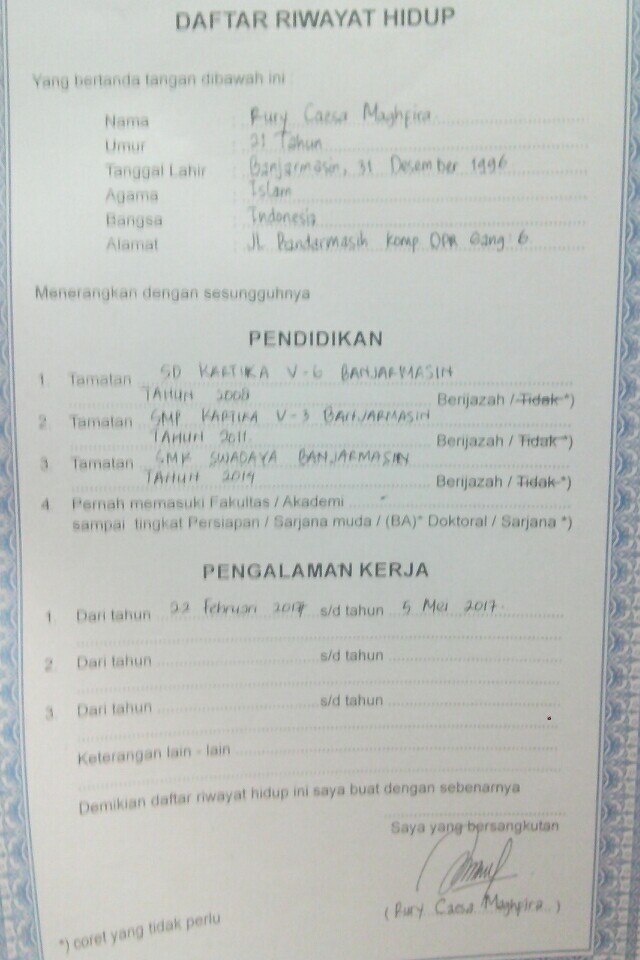 DAFTAR RIWAYAT HIDUP
Yang bertanda tangan dibawah ini :
Nama : Rury Caesa Maghpira
Umur : 21 Tahun
Tanggal Lahir : Banjarmasin, 31 Desember 1996
Agama : Islam
Bangsa : Indonesia
Alamat : JL Bandarmasih komp DPR Gang 6
Menerangkan dengan sesungguhnya
PENDIDIKAN
1. Tamatan SD KARTIKA V-6 BANJARMASIN
TAHUN 2008 Berijazah / Tidak *)
2. Tamatan SMP KARTIKA V-3 BANJARMASIN
TAHUN 2011 Berijazah / Tidak *)
3. Tamatan SMK SWADAYA BANJARMASIN
TAHUN 2014 Berijazah / Tidak *)
4. Pernah memasuki Fakultas / Akademi -
sampai tingkat Persiapan / Sarjana muda / (BA)* Doktoral / Sarjana *)
PENGALAMAN KERJA
1 Dari tahun 22 Februari 2017 s/d tahun 5 Mei 2017
2. Dari tahun s/d tahun
3. Dari tahun s/d tahun
Keterangan lain - lain
Demikian daftar riwayat hidup ini saya buat dengan sebenarnya
Saya yang bersangkutan
( Rury Caesa Maghpira )
*) coret yang tidak perlu